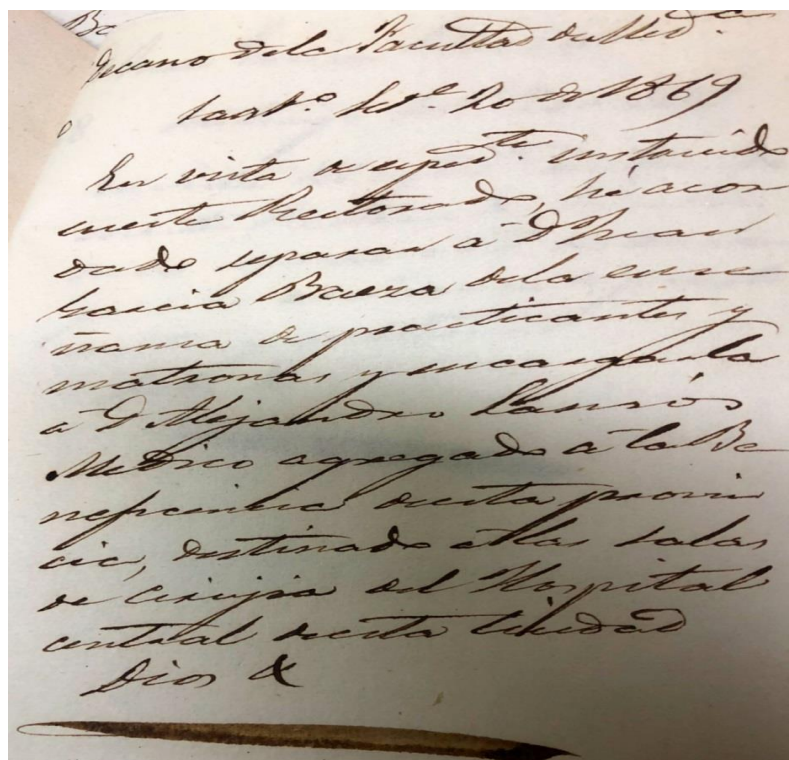 Decano dela Facultad de Med.ª
Sant.º Set.e 20 de 1869
En vista de exped.te instruido
en este Rectorado, hé acor
dado separar a D Juan
Garcia Baeza dela ense
ñanza de practicantes y
matronas y encargarla
a D Alejandro
Medico agregado a la Be
neficencia de esta provin
cia, destinado a las salas
de cirujia del Hospital
central de esta Ciudad
Dios &